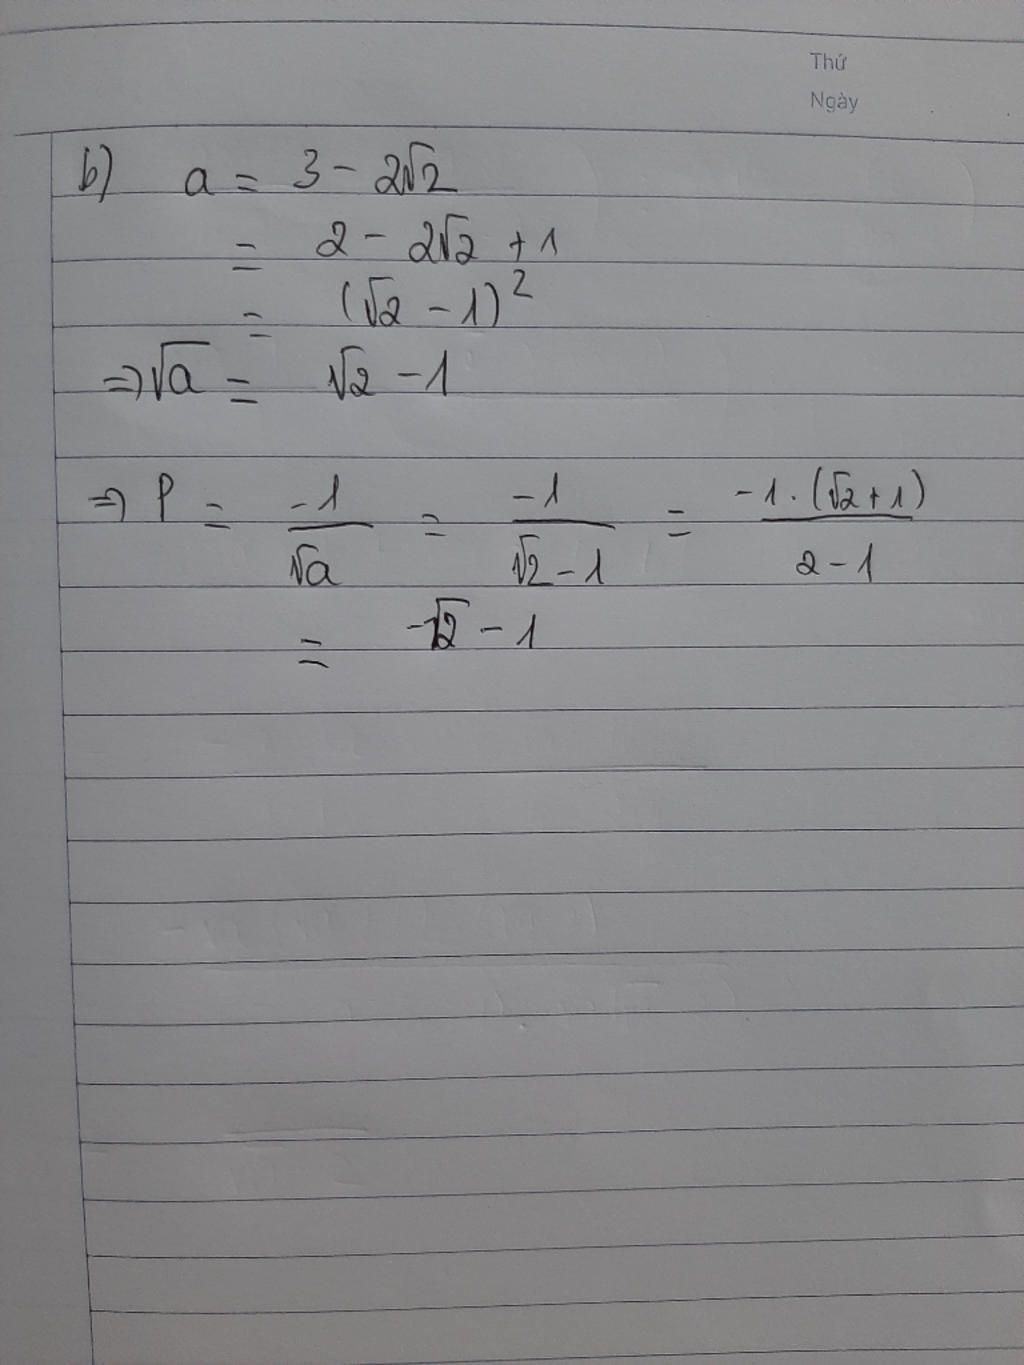 Thứ
Ngày
b) a = 3 - 2√2
= 2 - 2√2 + 1
= (√2 - 1)²
⇒ √a = √2 - 1
⇒ P = -1/√a = -1/(√2 - 1) = -1.(√2+1)/(2-1)
= -√2 - 1